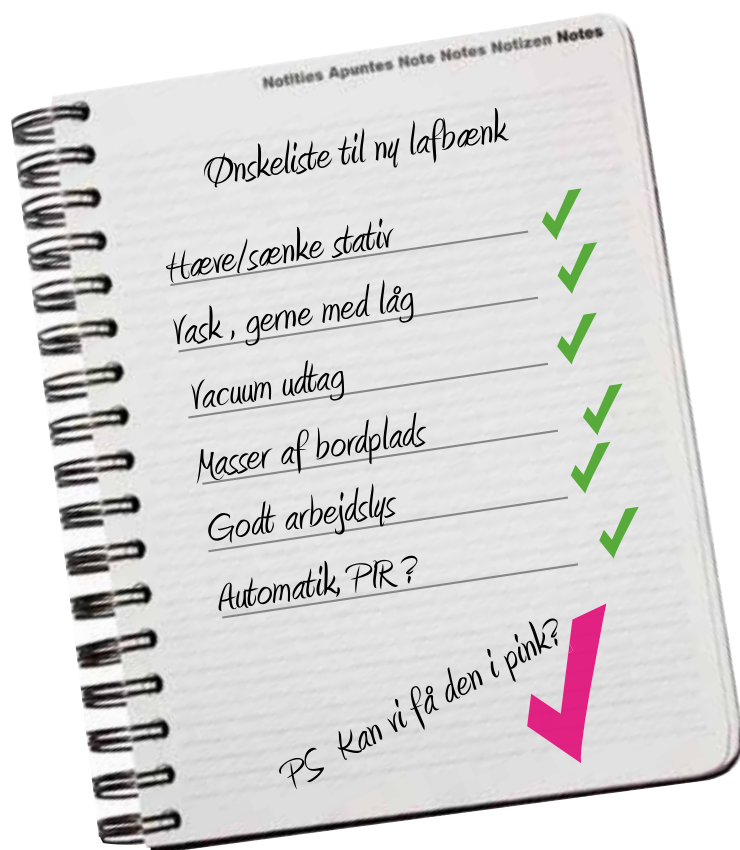 Notities Apuntes Note Notes Notizen Notes
Ønskeliste til ny lafbænk
Hæve/sænke stativ
Vask, gerne med låg
Vacuum udtag
Masser af bordplads
Godt arbejdslys
Automatik, PIR?
PS Kan vi få den i pink?